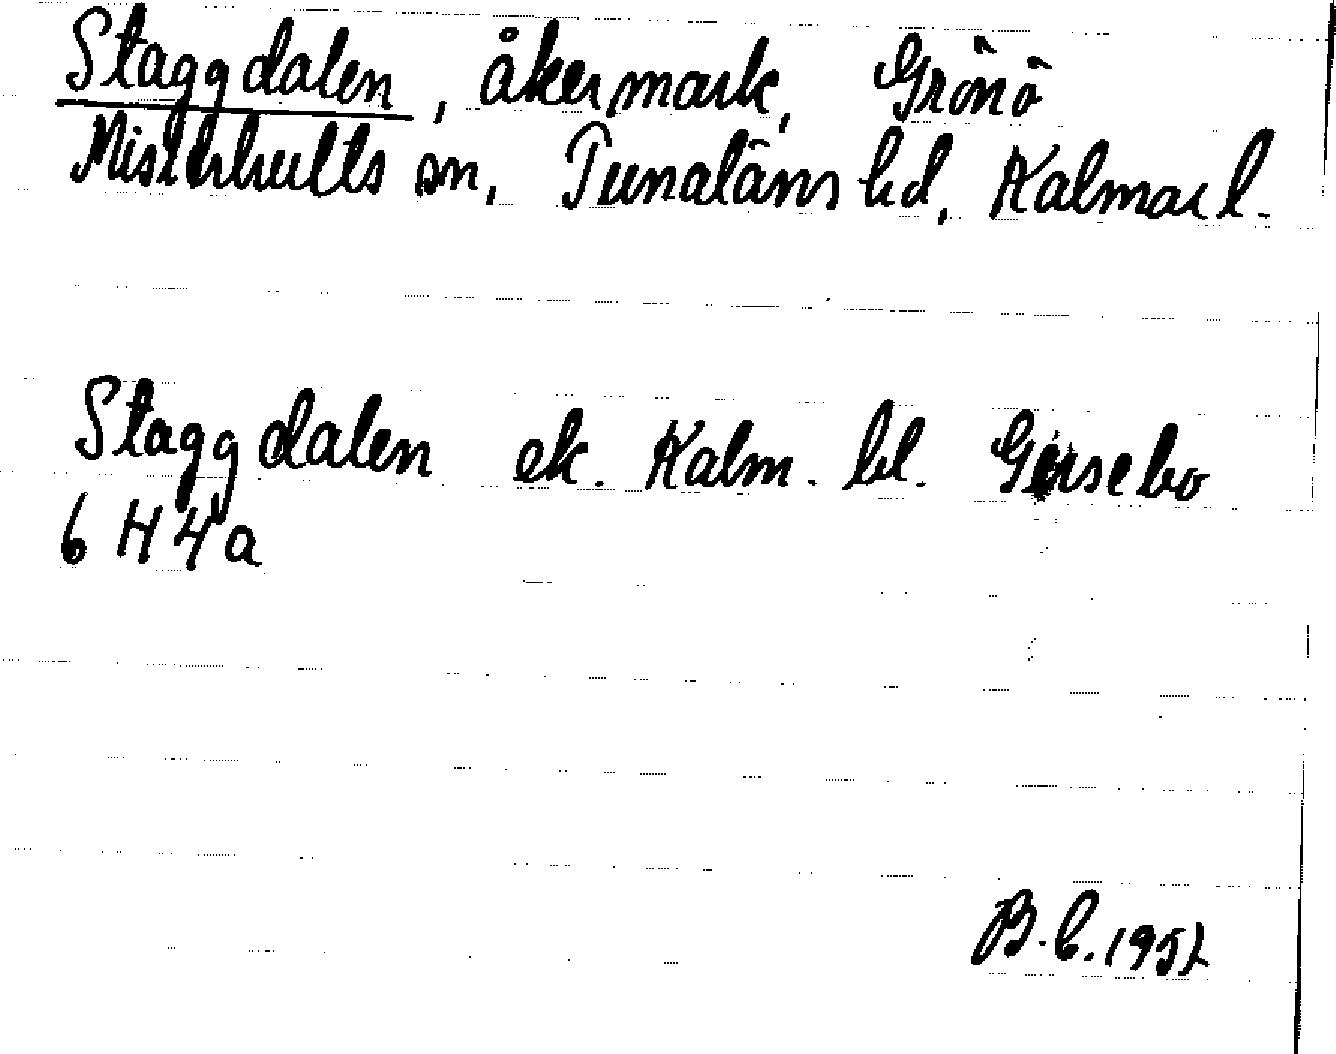 Staggdalen, åkermark, Grönö
Misterhults sn, Tunaläns hd, Kalmar l.
Staggdalen ek. Kalm. bl. Gersebo
6 H 4 a
B. C. 1952